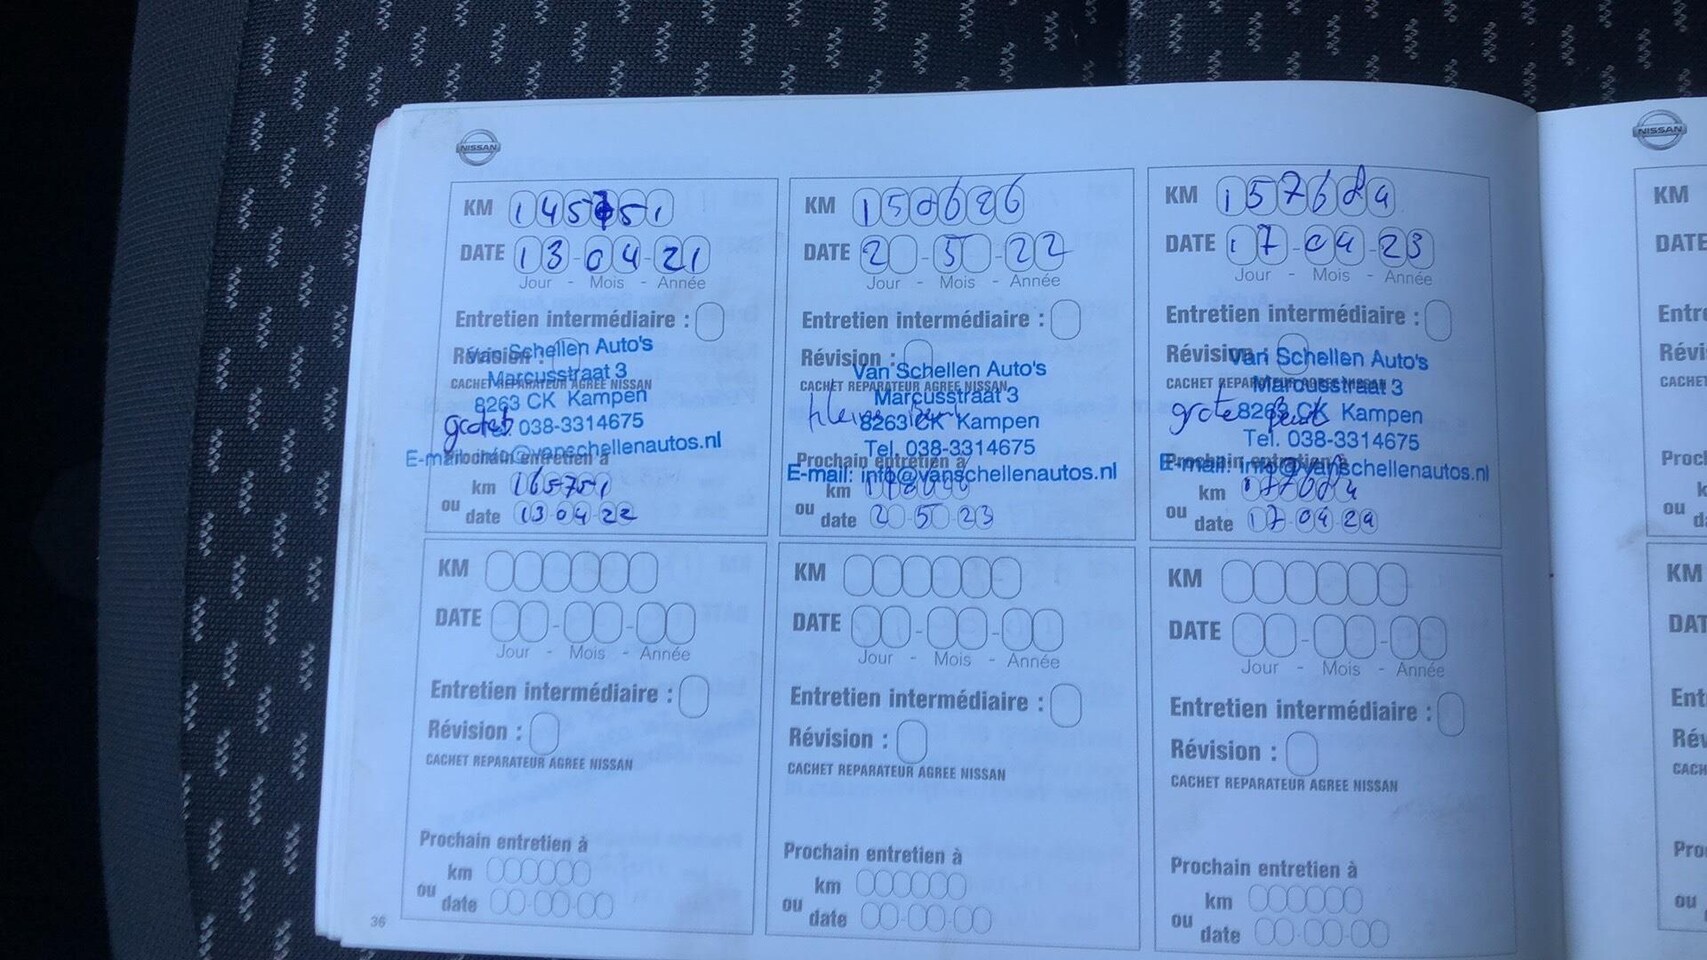 NISSAN
KM 145751
DATE 13-04-21
Jour - Mois - Année
Entretien intermédiaire :
Révision :
CACHET REPARATEUR AGREE NISSAN
Van Schellen Auto's
Marcusstraat 3
8263 CK Kampen
Tel. 038-3314675
E-mail: info@vanschellenautos.nl
Prochain entretien à
km 165751
ou date 13 04 22
KM 150626
DATE 2-5-22
Jour - Mois - Année
Entretien intermédiaire :
Révision :
CACHET REPARATEUR AGREE NISSAN
Van Schellen Auto's
Marcusstraat 3
kleine
8263 CK Kampen
Tel. 038-3314675
E-mail: info@vanschellenautos.nl
Prochain entretien à
km
ou date 2 5 23
KM 157684
DATE 17-04-23
Jour - Mois - Année
Entretien intermédiaire :
Révision :
CACHET REPARATEUR AGREE NISSAN
Van Schellen Auto's
Marcusstraat 3
grote beurt
8263 CK Kampen
Tel. 038-3314675
E-mail: info@vanschellenautos.nl
Prochain entretien à
km 177684
ou date 17 04 24
KM
DATE
Jour - Mois - Année
Entretien intermédiaire :
Révision :
CACHET REPARATEUR AGREE NISSAN
Prochain entretien à
km
ou date
KM
DATE
Jour - Mois - Année
Entretien intermédiaire :
Révision :
CACHET REPARATEUR AGREE NISSAN
Prochain entretien à
km
ou date
KM
DATE
Jour - Mois - Année
Entretien intermédiaire :
Révision :
CACHET REPARATEUR AGREE NISSAN
Prochain entretien à
km
ou date
36
NISSAN
KM
DATE
ou
KM
ou